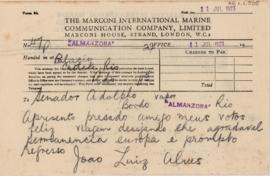 11 JUL 1923
THE MARCONI INTERNATIONAL MARINE
COMMUNICATION COMPANY, LIMITED
MARCONI HOUSE, STRAND, LONDON, W.C.2
11 JUL 1923
No. "ALMANZORA" OFFICE
Handed in at CHARGES TO PAY
Rio
To Senador Adolpho vapor
Bordo "ALMANZORA" Rio
Apresento presado amigo meus votos
feliz viagem desejando lhe agradavel
permanencia europa e prompto
regresso
João Luiz Alves